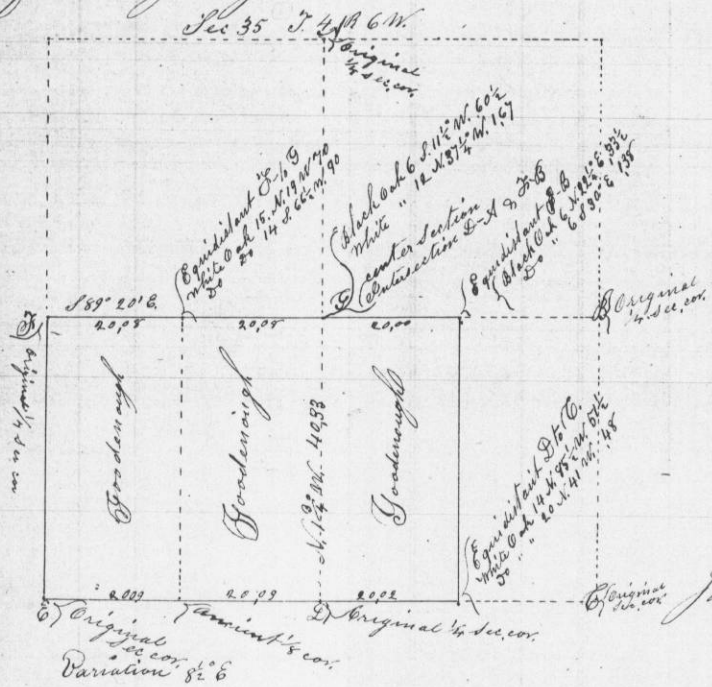 Sec 35 T. 4 R 6 W.
Original
1/4 Sec. cor.
Equidistant F to G
White Oak 15. N. 19 W 70
Do Do 14 S. 66½ W. 90
Black Oak 6 S. 11½° W. 60½
White " 12 N. 37½° W. 167
G center Section
Intersection D-A & F-B
Equidistant G B
Black Oak 6 N. 22½° E. 93½
Do " 6 S 30° E 138
S 89° 20' E.
20,08
20,08
20,00
F Original 1/4 Sec cor
B Original
1/4 Sec. cor.
Goodenough
Goodenough
N. 1¼° W. 40,33
Goodenough
Equidistant D to C.
White Oak 14 N. 85½ W. 51½
Do " 20 N. 41 W. 48
2009
20,09
20,02
E Original
Sec cor.
ancient 1/8 cor.
D Original 1/4 Sec. cor.
C Original
Sec. cor.
Variation 8½° E